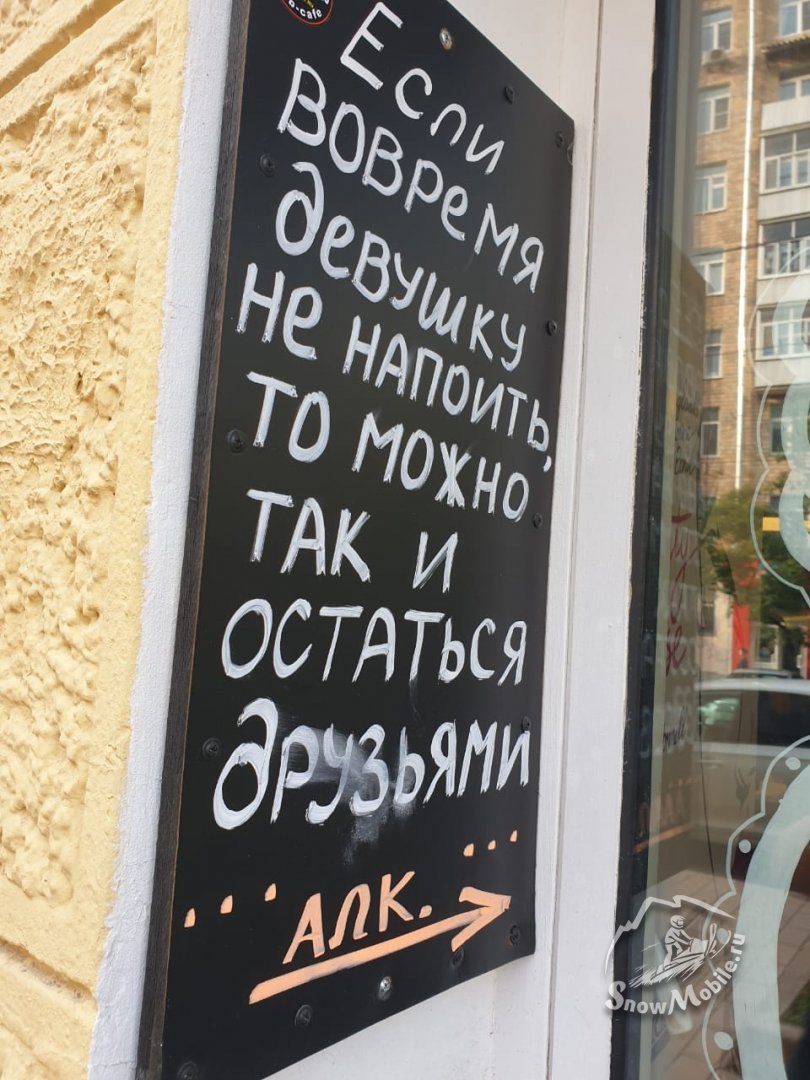 o-cafe
Если
вовремя
девушку
не напоить,
то можно
так и
остаться
друзьями
... АЛК. ...
SnowMobile.ru